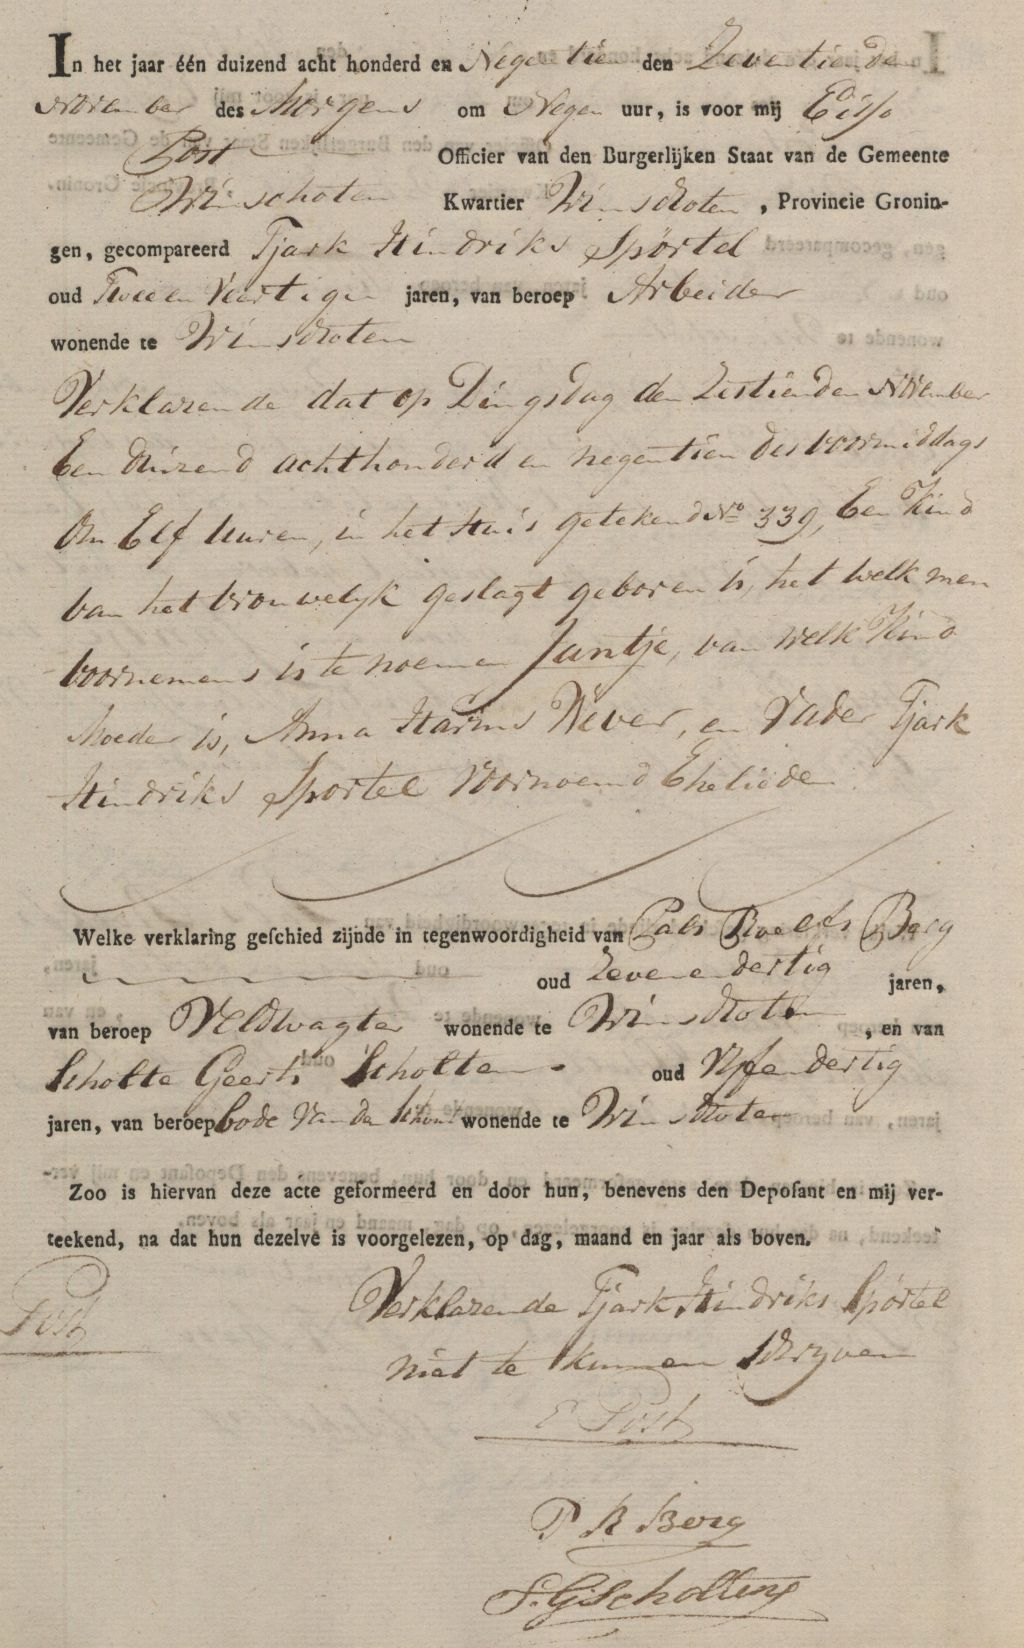 In het jaar één duizend acht honderd en Negentien den Zeventiende
November des Morgens om Negen uur, is voor mij Edso
Post Officier van den Burgerlijken Staat van de Gemeente
Winschoten Kwartier Winschoten, Provincie Gronin-
gen, gecompareerd Tjark Hindriks Sportel
oud Twee en Veertigen jaren, van beroep Arbeider
wonende te Winschoten
Verklarende dat op Dingsdag den Zestienden November
Een duizend achthonderd en negentien des voormiddags
Om Elf Uuren, in het Huis getekend No 339, Een Kind
van het vrouwelyk geslagt geboren is, het welk men
voornemens is te noemen Jantje, van welk Kind
Moeder is, Anna Harms Wever, en Vader Tjark
Hindriks Sportel voornoemd Ehelieden
Welke verklaring geschied zijnde in tegenwoordigheid van Pals Roelfs Berg
oud Zevenendertig jaren,
van beroep Veldwagter wonende te Winschoten, en van
Scholte Geerts Scholtens oud Vyfendertig
jaren, van beroep bode van de wonende te Winschoten
Zoo is hiervan deze acte geformeerd en door hun, benevens den Deposant en mij ver-
teekend, na dat hun dezelve is voorgelezen, op dag, maand en jaar als boven.
Post
Verklarende Tjark Hindriks Sportel
niet te kunnen schryven
E Post
P R Berg
S. G. Scholtens